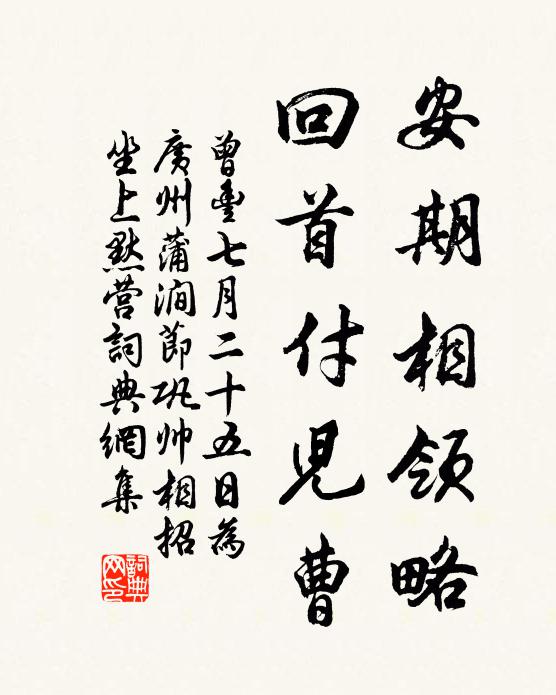 安期相領略
回首付兒曹
曾豐七月二十五日為
廣州蒲澗節巩帅相招
坐上默营詞典網集
詞典
网印